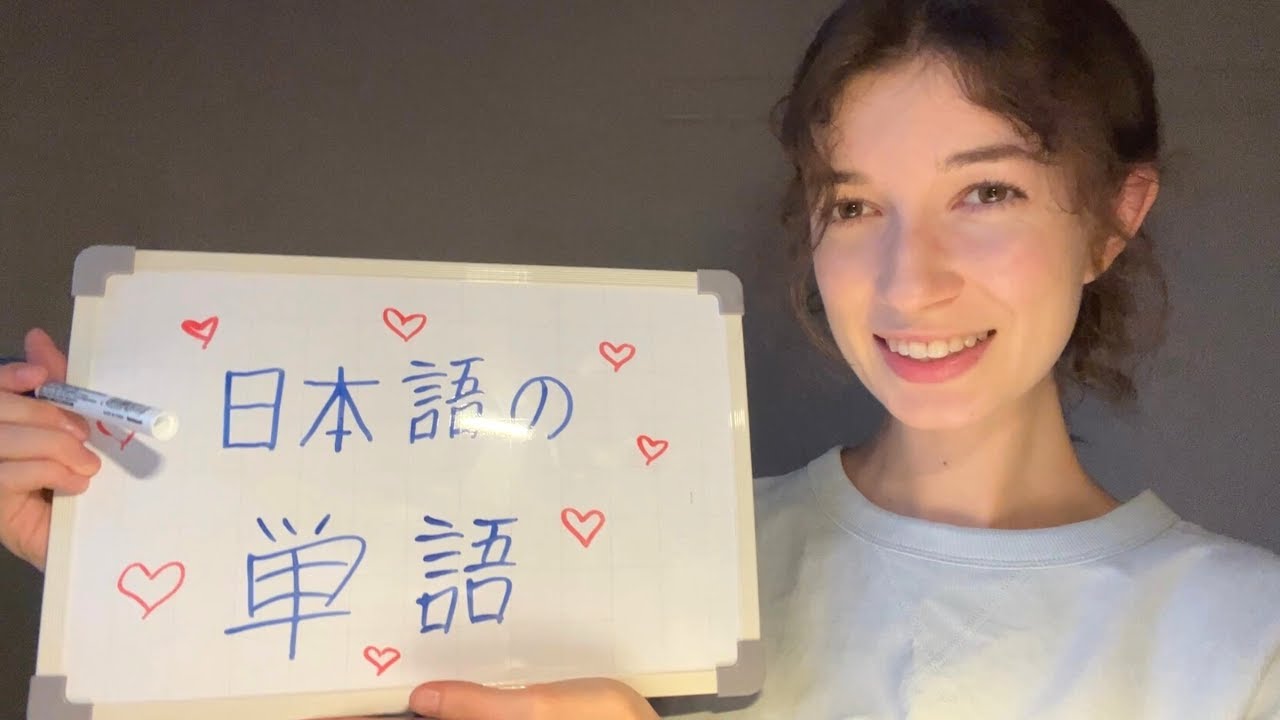 日本語の
単語